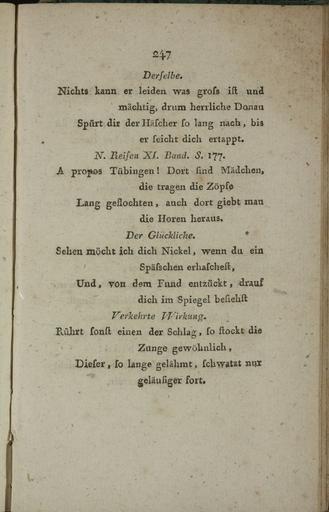 247
Derſelbe.
Nichts kann er leiden was groſs iſt und
mächtig, drum herrliche Donau
Spürt dir der Häſcher ſo lang nach, bis
er ſeicht dich ertappt.
N. Reiſen XI. Band. S. 177.
A propos Tübingen! Dort ſind Mädchen,
die tragen die Zöpfe
Lang geflochten, auch dort giebt man
die Horen heraus.
Der Glückliche.
Sehen möcht ich dich Nickel, wenn du ein
Späſschen erhaſcheſt,
Und, von dem Fund entzückt, drauf
dich im Spiegel beſiehſt
Verkehrte Wirkung.
Rührt ſonſt einen der Schlag, ſo ſtockt die
Zunge gewöhnlich,
Dieſer, ſo lange gelähmt, ſchwatzt nur
geläufiger fort.